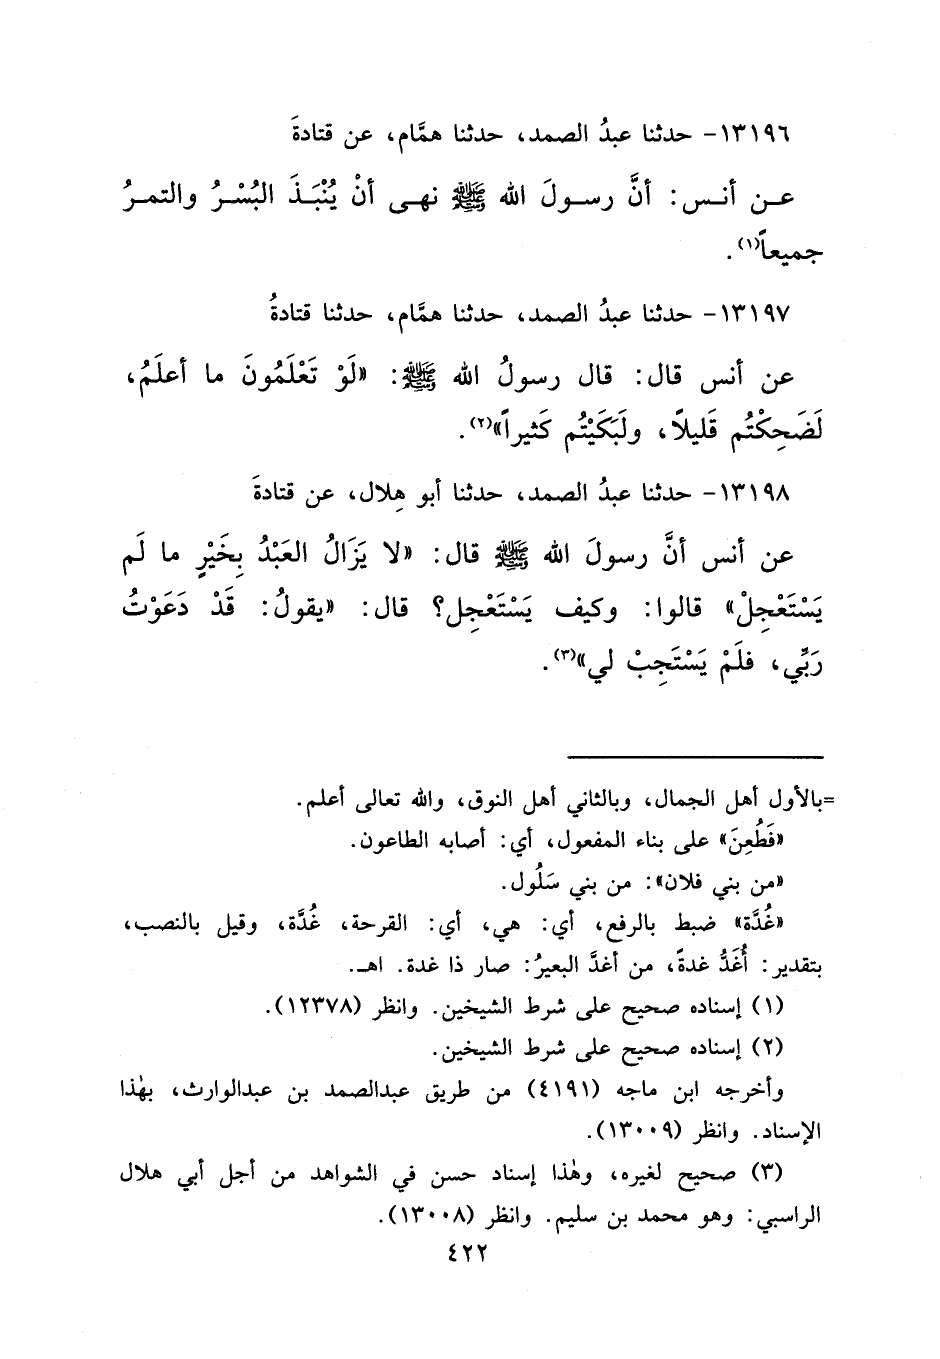 ١٣١٩٦- حدثنا عبدُ الصمد، حدثنا همَّام، عن قتادةَ
عـن أنـس: أنَّ رسـولَ الله ﷺ نهـى أنْ يُنْبَـذَ البُسْـرُ والتمـرُ
جميعاً(١).
١٣١٩٧- حدثنا عبدُ الصمد، حدثنا همَّام، حدثنا قتادةُ
عن أنس قال: قال رسولُ الله ﷺ: «لَوْ تَعْلَمُونَ ما أعلَمُ،
لَضَحِكْتُم قَليلاً، ولَبَكَيْتُم كَثيراً»(٢).
١٣١٩٨- حدثنا عبدُ الصمد، حدثنا أبو هِلال، عن قتادةَ
عن أنس أنَّ رسولَ الله ﷺ قال: «لا يَزَالُ العَبْدُ بِخَيْرٍ ما لَم
يَسْتَعْجِلْ» قالوا: وكيف يَسْتَعْجِل؟ قال: «يقولُ: قَدْ دَعَوْتُ
رَبِّي، فلَمْ يَسْتَجِبْ لي»(٣).
=بالأول أهل الجمال، وبالثاني أهل النوق، والله تعالى أعلم.
«فَطُعِنَ» على بناء المفعول، أي: أصابه الطاعون.
«من بني فلان»: من بني سَلُول.
«غُدَّة» ضبط بالرفع، أي: هي، أي: القرحة، غُدَّة، وقيل بالنصب،
بتقدير: أُغَدُّ غدةً، من أغدَّ البعيرُ: صار ذا غدة. اهـ.
(١) إسناده صحيح على شرط الشيخين. وانظر (١٢٣٧٨).
(٢) إسناده صحيح على شرط الشيخين.
وأخرجه ابن ماجه (٤١٩١) من طريق عبدالصمد بن عبدالوارث، بهٰذا
الإسناد. وانظر (١٣٠٠٩).
(٣) صحيح لغيره، وهٰذا إسناد حسن في الشواهد من أجل أبي هلال
الراسبي: وهو محمد بن سليم. وانظر (١٣٠٠٨).
٤٢٢